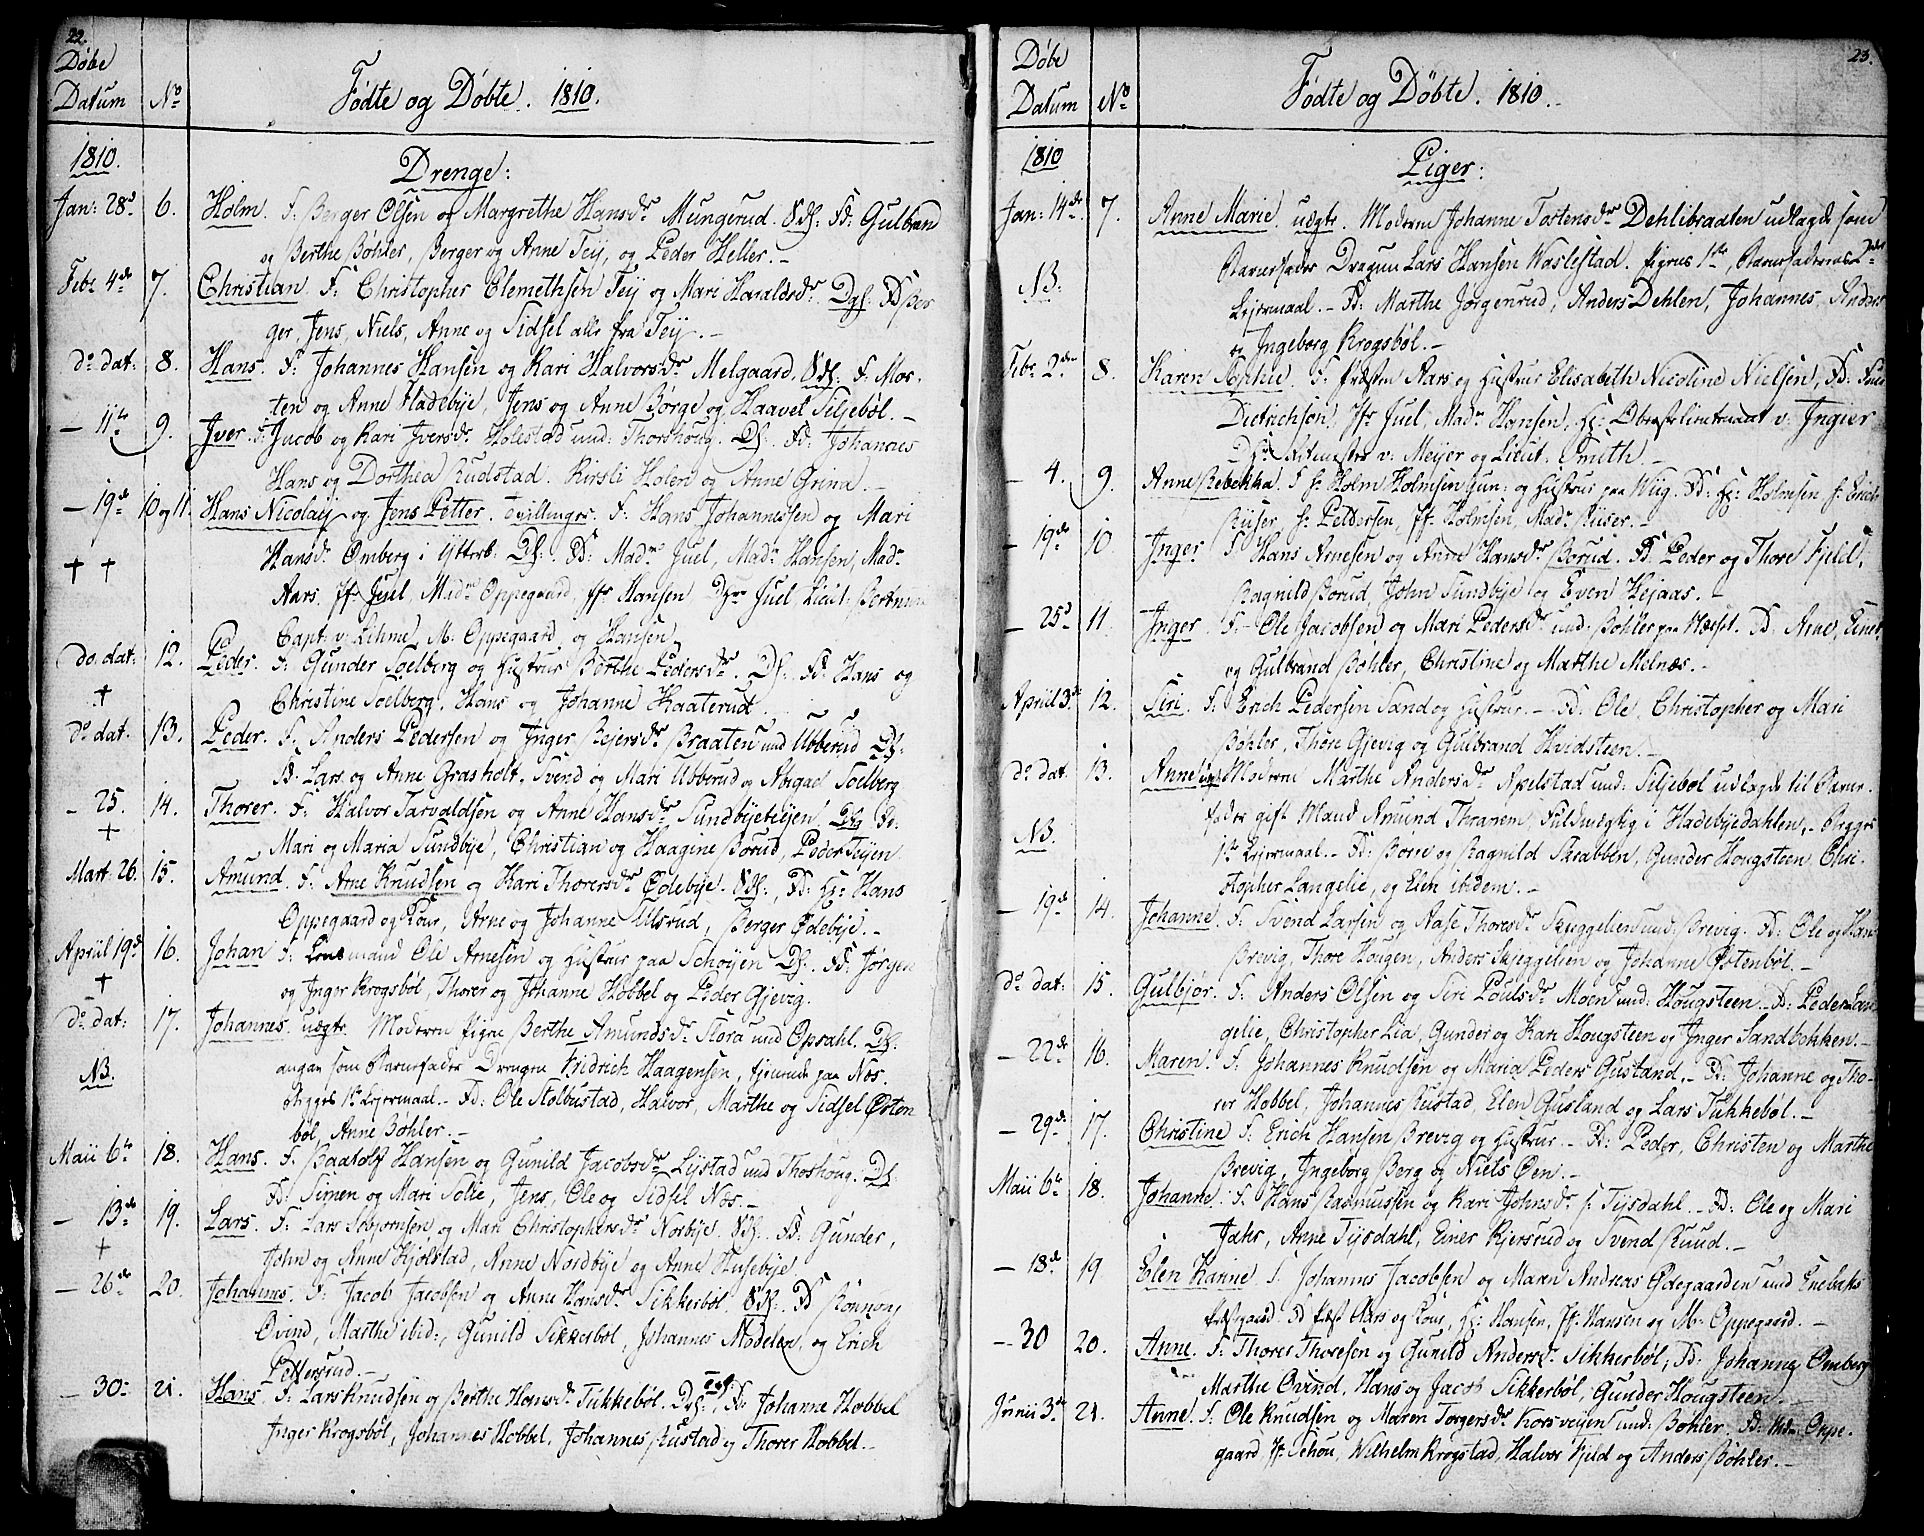 22.
Døbe
Datum No
Fødte og Døbte. 1810.
1810.
Drenge:
Jan: 28d 6. Holm. F. Berger Olsen og Margrethe Hansdr Mungerud. F: Fd: Gulbrand
og Berthe Bøhler, Berger og Anne Teÿ, og Peder Heller.
Febr 4de 7. Christian. F: Christopher Clemethsen Teÿ og Mari Haraldsdr Fd Ber
ger, Jens, Niels, Anne og Sidsel alle fra Teÿ.
do dat: 8. Hans. F: Johannes Hansen og Kari Halvorsdr Melgaard. F: Mor.
ten og Anne Hadebÿe, Jens og Anne Børge og Haavel Siljebøl.
11te 9. Jver. F: Jacob og Kari Jversdr Holestad und: Thorshoug. Fd: Johannes
Hans og Dorthea Rudstad. Kirsti Holen og Anne Grina.
19de 10 og 11. Hans Nicolaÿ og Jens Petter. Tvillinger. F: Hans Johannessen og Mari
† † Hansdr Omberg i Ytterb: Fd: Madme Juel, Madm Hansen, Madm
Aars. Jfr Juel, Madme Oppegaard, Jfr Hansen Juel Lieut:
Capt: v: Lehme, M: Oppegaard, og Hansen
do. dat: 12. Peder. F: Gunder Soelberg og Hustrue Berthe Pedersdr. Fd: Hans og
† Christine Soelberg, Hans og Johanne Kaaterud.
do dat. 13. Peder. F: Anders Pedersen og Inger Rejersdr Braaten und Ubberud
Fd: Lars og Anne Grasholt. Svend og Mari Ubberud og Abigael Soelberg
25. 14. Thorer. F: Halvor Tarvaldsen og Anne Hansdr Sundbÿeteÿen. Fd:
† Mari og Maria Sundbÿe, Christian og Haagine Borud, Peder Teÿen
Mart. 26. 15. Amund. F: Arne Knudsen og Kari Thorersdr Ødebÿe. Fd: Hr: Hans
Oppegaard og Frue, Arne og Johanne Ulsrud, Berger Ødebÿe.
Apriil 19d 16. Johan F: Lensmand Ole Arnesen og Hustrue paa Schøÿen Fd: Jørgen
† og Inger Krogsbøl, Thorer og Johanne Hobbel og Peder Gjevig.
do dat: 17. Johannes. uægte. Moderen Pigen Berthe Amundsdr Flora und Opsahl.
NB. angav som Barnefader Dragon Fridrich Haagensen, tjenende paa Næs.
Begges 1te Lejermaal. Fd: Ole Stolbustad, Halvor, Marthe og Sidsel Østen
bøl, Anne Bøhler.
Maii 6te 18. Hans. F: Baadolf Hansen og Gunild Jacobsdr Lÿstad und Thoshoug.
Fd: Simen og Mari Solie, Jens, Ole og Sidsel Næs.
13de 19. Lars. F: Lars Asbjørnsen og Mari Christophersdr Norbÿe. Fd: Gunder,
† John og Anne Kjølstad, Anne Nordbÿe og Anne Husebÿe
26de 20. Johannes. F: Jacob Jacobsen og Anne Hansdr Sikkerbøl. Fd Rønnoug
Øvind, Marthe ibid:, Gunild Sikkerbøl, Johannes Modelen, og Erich
Pettersrud.
30: 21. Hans F: Lars Knudsen og Berthe Hansdr Tukkebøl. Fd: Johanne Hobbel
Inger Krogsbøl, Johannes Hobbel, Johannes Rustad og Thorer Hobbel.
23.
Døbe
Datum No
Fødte og Døbte. 1810.
1810
Piger:
Jan: 14de 7. Anne Marie. uægte. Moderen Johanne Tostensdr Dehlibraaten udlagde som
NB. Barnefader Dragun Lars Hansen Woslestad. Pigens 1te, Barnefaderens 2det
Lejermaal. Fd: Marthe Jørgenrud, Anders Dehlen, Johannes, Anders
og Ingeborg Krogsbøl.
Febr 2den 8. Karen Sophie. F: Præsten Aars og Hustrue Elisabeth Nicoline Nielsen, Fd: Frue
Dietrichson, Jfr Juel, Madm Hansen, Hr: Obrestlieutenant v: Ingier
Ritmester v: Meÿer og Lieut: Smith.
4. 9. Anne Rebekka. F: Hr Holm Holmsen jun: og Hustrue paa Wiig. Fd: Hr: Holmsen Hr: Erich
Rÿser, Hr: Peddersen, Jfr Holmsen, Madm Rÿser.
19de 10. Inger. F. Hans Arnesen og Anne Hansdr Borud. Fd: Peder og Thore Fjeld,
Ragnild Borud, John Sundbÿe og Even Hejaas.
25d 11. Inger F: Ole Jacobsen og Mari Pedersdr und: Bøhler paa Næset. Fd: Arne, Einer,
og Gulbrand Bøhler, Christine og Marthe Melnæs.
Apriil 3de 12. Siri. F: Erich Pedersen Sand og Hustrue. Fd: Ole, Christopher og Mari
Bøhler, Thore Gjevig og Gulbrand Hvidsteen.
do dat 13. Anne. Moderen Marthe Andersdr Apelstad und: Siljebøl udlagde til Barne-
NB. fader gift Mand Amund Thranem, Fuldmægtig i Hadebÿedahlen. Begges
1te Lejermaal. Fd: Borre og Ragnild Skrabben, Gunder Hougsteen, Chri-
stopher Langelie, og Elen ibidem.
19de 14. Johanne. F: Svend Larsen og Aase Thoresdr Skuggelien und: Brevig. Fd: Ole og Hans
Brevig, Thore Hougen, Anders Skjeggelien og Johanne Østenbøl.
do dat: 15. Gulbjør. F: Anders Olsen og Siri Poulsdr Moen und: Hougsteen. Fd: Peder Lan-
gelie, Christopher Lia, Gunder og Kari Hougsteen og Inger Sandbakken.
22de 16. Maren. F: Johannes Knudsen og Maria Peders Gustand. Fd: Johanne og Tho-
rer Hobbel, Johannes Rustad, Elen Gusland og Lars Tukkebøl.
29de 17. Christine F: Erich Hansen Brevig og Hustrue. Fd: Peder, Christen og Marthe
Brevig, Ingeborg Berg og Niels Øen.
Maii 6te 18. Johanne. F. Hans Rasmussen og Kari Johnsdr Tÿsdahl. Fd: Ole og Mari
Jahr, Anne Tÿsdahl, Einer Kjersrud og Svend Ruud.
18de 19 Elen Hanne F. Johannes Jacobsen og Maren Andreas Ødegaarden und Enebaks
Præstegaard. Fd Præst Aars og Frue, Hr: Hansen, Jfr Hansen og M: Oppegaard.
30 20. Anne. F: Thorer Thoresen og Gunild Andersdr Sikkerbøl, Fd: Johannes Omberg
Marthe Øvind, Hans og Jacob Sikkerbøl, Gunder Hougsteen.
Junii 3de 21. Anne. F: Ole Knudsen og Maren Torgersdr Korsveÿen und: Bøhler. Fd: Mdm: Oppe-
gaard Jfr Schou, Wilhelm Krogstad, Halvor Fjeld og Anders Bøhler.